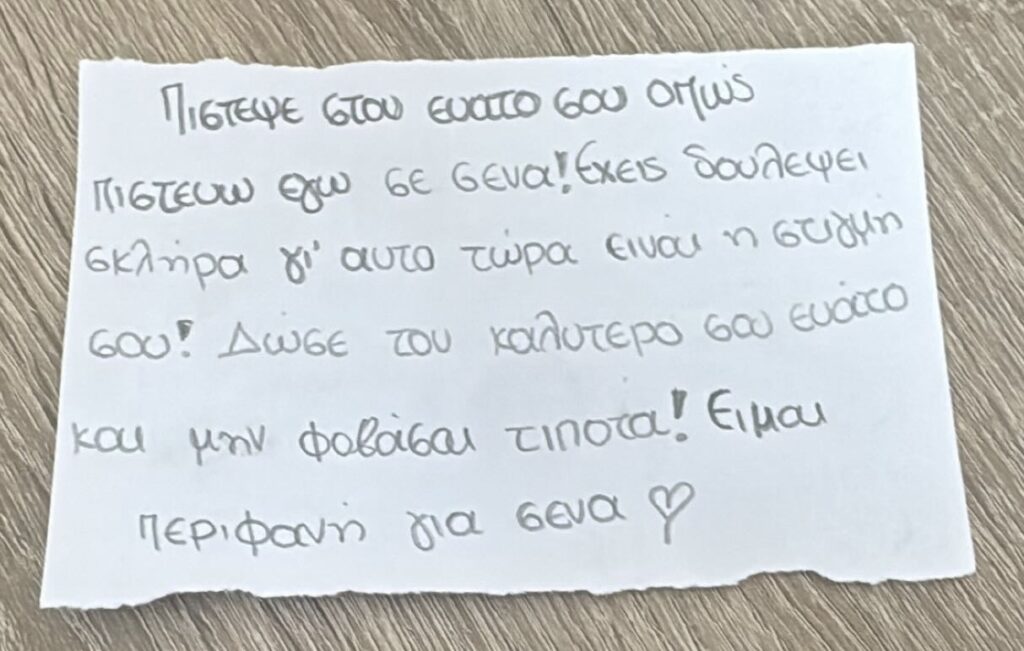 Πιστεψε στου ευατο σου οπώς
πιστευω εγω σε σενα! Εχεις δουλεψει
σκλήρα γι' αυτο τώρα ειναι η στιγμή
σου! Δώσε του καλυτερο σου ευάτο
και μην φοβάσαι τιποτά! Ειμαι
περιφανή για σενα ♡